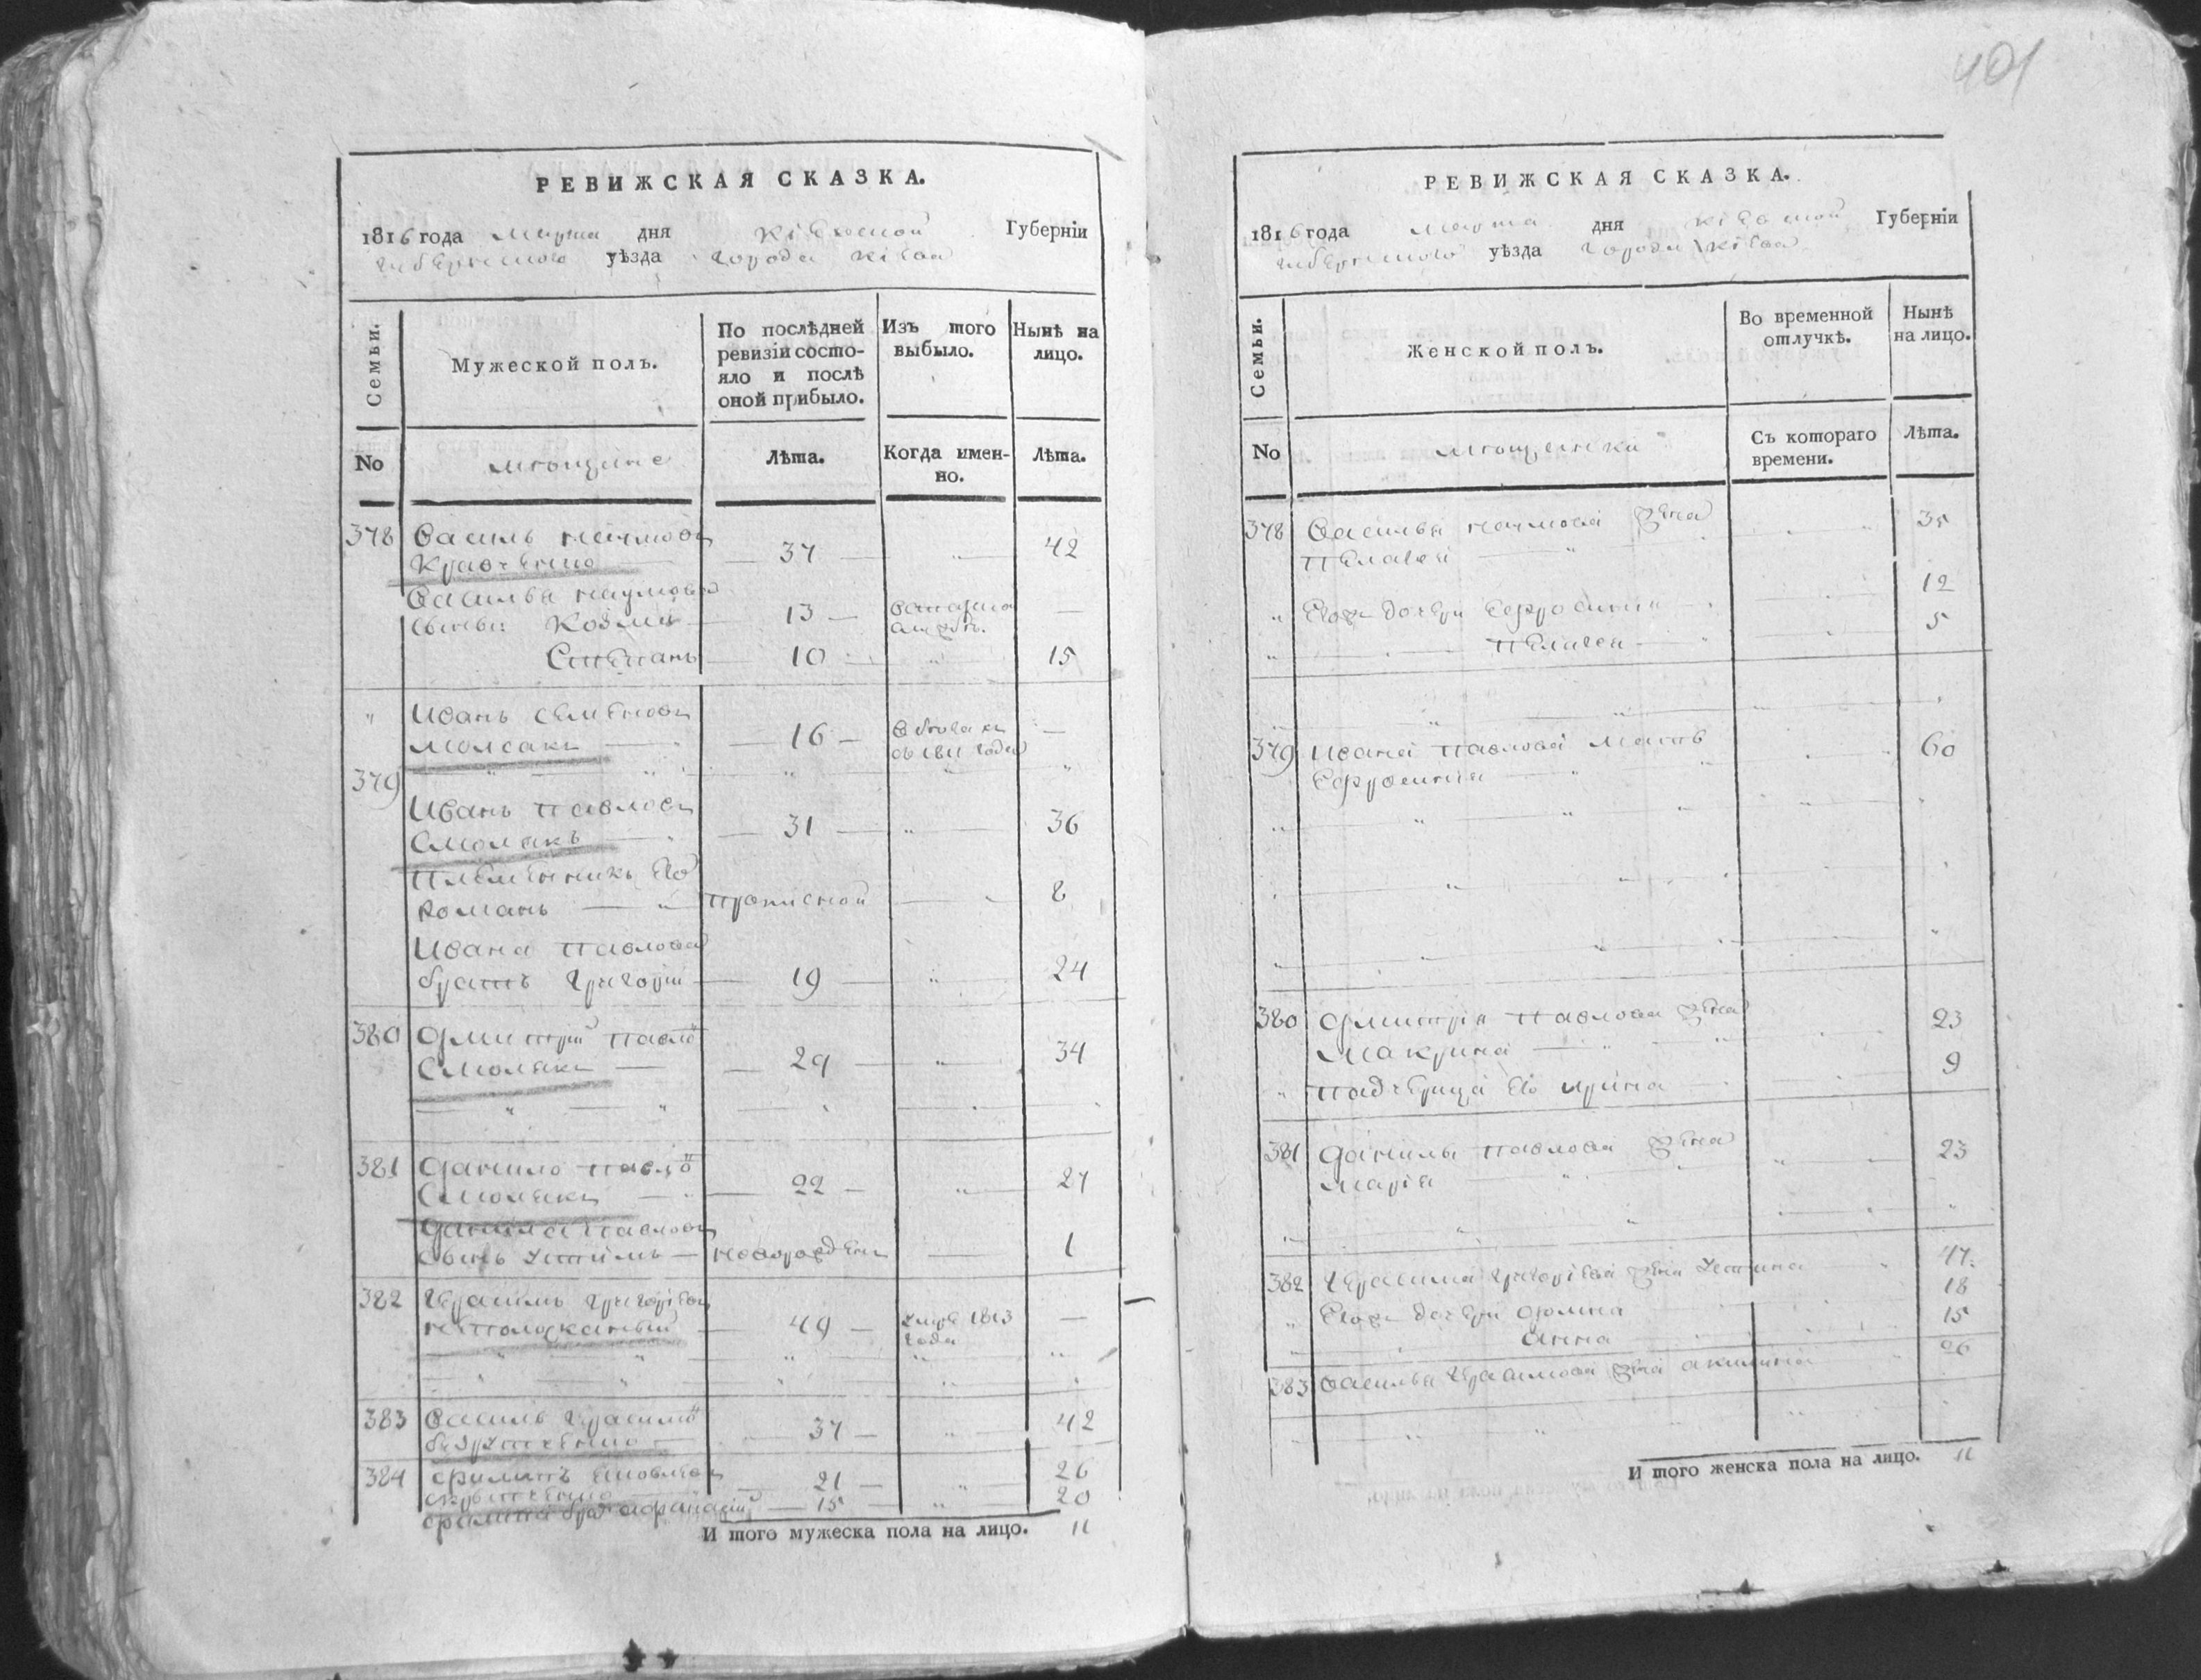 401
РЕВИЖСКАЯ СКАЗКА.
1816 года марта дня Кіевской Губерніи
Губернского уѣзда города Кіева
Семьи. Мужеской полъ. По послѣдней ревизіи состояло и послѣ оной прибыло. Изъ того выбыло. Нынѣ на лицо.
No мещане Лѣта. Когда именно. Лѣта.
378 Василь Наумовъ
Кравченко 37 42
Василья Наумова
сыновья: Козма 13
Степанъ 10 15
Иванъ Семеновъ
16 въ бегахъ
съ 1811 года
379
Иванъ Павловъ
Смолякъ 31 36
Племенникъ его
Романъ прописной 8
Ивана Павлова
братъ Григорій 19 24
380 Дмитрій Павло
Смолякъ 29 34
381 Данило Павло
Смолякъ 22 27
Данила Павлова
сынъ новорожденъ 1
382 Герасимъ Григорьевъ
49 умре 1813
года
383 Василь Герасимо
37 42
384 Филипъ
21 26
Филипа братъ Афанасій 15 20
И того мужеска пола на лицо. 11
РЕВИЖСКАЯ СКАЗКА.
1816 года марта дня Кіевской Губерніи
Губернского уѣзда города Кіева
Семьи. Женской полъ. Во временной отлучкѣ. Нынѣ на лицо.
No мещанки Съ котораго времени. Лѣта.
378 Василья Наумова жена 35
Пелагея
Егожъ дочери Ефросинія 12
Пелагея 5
379 Ивана Павлова мать 60
Ефросинія
380 Дмитрія Павлова жена 23
Макрина
Падчерица его Ирина 9
381 Данилы Павлова жена 23
Марія
382 Герасима Григорьева жена Устина 47
Егожъ дочери 18
Анна 15
383 Василья Герасимова жена Акилина 26
И того женска пола на лицо. 11